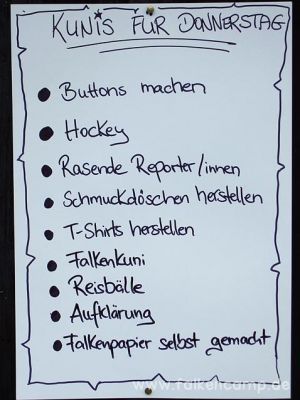 KUNI*S FÜR DONNERSTAG
• Buttons machen
• Hockey
• Rasende Reporter/innen
• Schmuckdöschen herstellen
• T-Shirts herstellen
• Falkenkuni
• Reisbälle
• Aufklärung
• Falkenpapier selbst gemacht
www.falkencamp.de